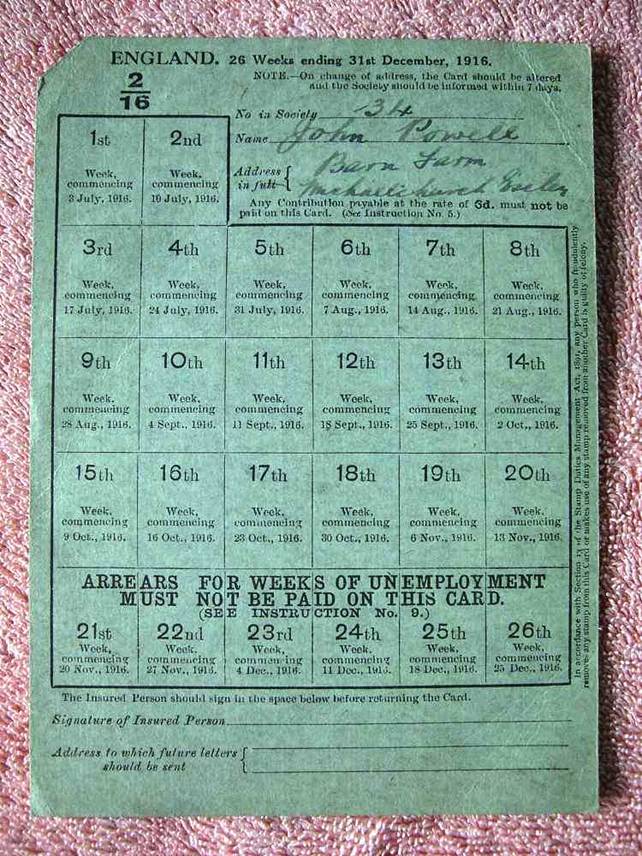 ENGLAND. 26 Weeks ending 31st December, 1916.
2
16
NOTE.—On change of address, the Card should be altered
and the Society should be informed within 7 days.
No in Society 34
Name John Powell
Address in full Barn Farm
Michaelchurch Escley
Any Contribution payable at the rate of 3d. must not be
paid on this Card. (See Instruction No. 5.)
1st 2nd
Week, Week,
commencing commencing
3 July, 1916. 10 July, 1916.
3rd 4th 5th 6th 7th 8th
Week, Week, Week, Week, Week, Week,
commencing commencing commencing commencing commencing commencing
17 July, 1916. 24 July, 1916. 31 July, 1916. 7 Aug., 1916. 14 Aug., 1916. 21 Aug., 1916.
9th 10th 11th 12th 13th 14th
Week, Week, Week, Week, Week, Week,
commencing commencing commencing commencing commencing commencing
28 Aug., 1916. 4 Sept., 1916. 11 Sept., 1916. 18 Sept., 1916. 25 Sept., 1916. 2 Oct., 1916.
15th 16th 17th 18th 19th 20th
Week, Week, Week, Week, Week, Week,
commencing commencing commencing commencing commencing commencing
9 Oct., 1916. 16 Oct., 1916. 23 Oct., 1916. 30 Oct., 1916. 6 Nov., 1916. 13 Nov., 1916.
ARREARS FOR WEEKS OF UNEMPLOYMENT
MUST NOT BE PAID ON THIS CARD.
(SEE INSTRUCTION No. 9.)
21st 22nd 23rd 24th 25th 26th
Week, Week, Week, Week, Week, Week,
commencing commencing commencing commencing commencing commencing
20 Nov., 1916. 27 Nov., 1916. 4 Dec., 1916. 11 Dec., 1916. 18 Dec., 1916. 25 Dec., 1916.
The Insured Person should sign in the space below before returning the Card.
Signature of Insured Person
Address to which future letters
should be sent
In accordance with Section 13 of the Stamp Duties Management Act, 1891, any person who fraudulently
removes any stamp from this Card or makes use of any stamp removed from another Card is guilty of felony.